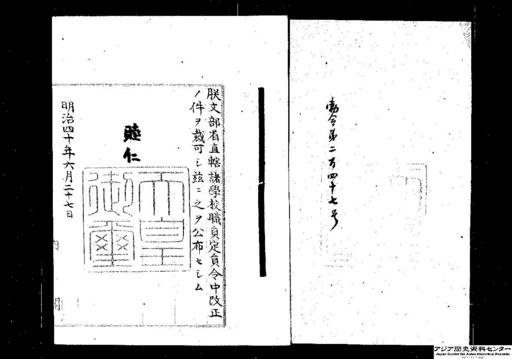 勅令第二百四十七号
朕文部省直轄諸学校職員定員令中改正
ノ件ヲ裁可シ茲ニ之ヲ公布セシム
睦仁
天皇御璽
明治四十年六月二十七日
アジア歴史資料センター
Japan Center for Asian Historical Records